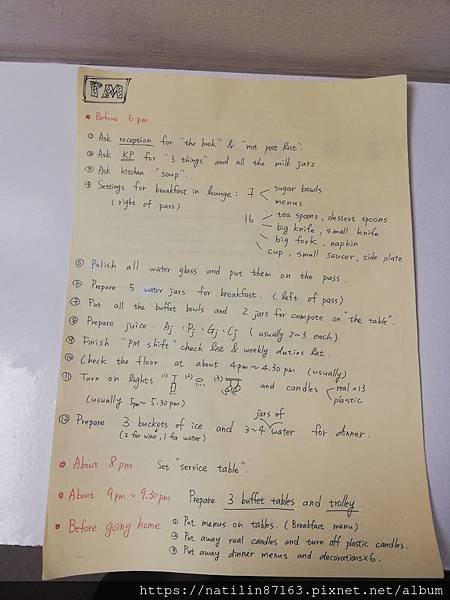 PM
• Before 6 pm
① Ask reception for "the book" & "not post list".
② Ask KP for "3 things" and all the milk jars.
③ Ask kitchen "soup".
④ Settings for breakfast in lounge : 7 < sugar bowls
menus
(right of pass)
16 < tea spoons, dessert spoons
big knife, small knife
big fork, napkin
cup, small saucer, side plate
⑤ Polish all water glass and put them on the pass.
⑥ Prepare 5 water jars for breakfast. (left of pass)
⑦ Put all the buffet bowls and 2 jars for compote on "the table".
⑧ Prepare juice : Aj, Pj, Gj, Cj (usually 2~3 each)
⑨ Finish "PM shift" check list & weekly duties list.
⑩ Check the floor at about 4pm~4.30 pm (usually)
⑪ Turn on lights (1) (2) (3) and candles < real×13
plastic
(usually 5pm~5.30pm)
⑫ Prepare 3 buckets of ice and 3~4 jars of water for dinner.
(2 for wine, 1 for water)
• About 8 pm Set "service table".
• About 9 pm ~ 9.30 pm Prepare 3 buffet tables and trolley.
• Before going home ① Put menus on tables. (Breakfast menu)
② Put away real candles and turn off plastic candles.
③ Put away dinner menus and decorations×6.
https://natilin87163.pixnet.net/album